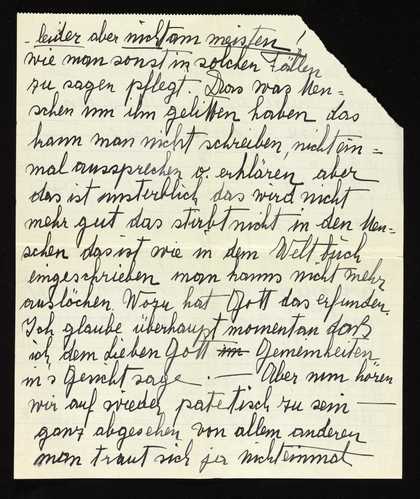 - leider aber nicht am meisten!
wie man sonst in solchen Fällen
zu sagen pflegt. Das was Men-
schen um ihn gelitten haben das
kann man nicht schreiben, nicht ein=
mal aussprechen o. erklären, aber
das ist unsterblich das wird nicht
mehr gut das stirbt nicht in den Men-
schen das ist wie in dem Weltbuch
eingeschrieben man kanns nicht mehr
auslöchen. Wozu hat Gott das erfunden.
Ich glaube überhaupt momentan daß
ich dem lieben Gott im Gemeinheiten
in's Gesicht sage. — Aber nun hören
wir auf wieder patetisch zu sein —
ganz abgesehen von allem anderen
man traut sich ja nicht einmal